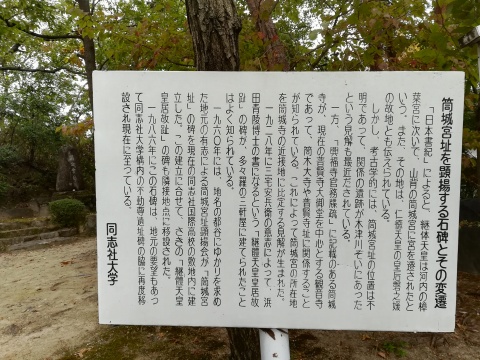 筒城宮址を顕揚する石碑とその変遷
「日本書記」によると、継体天皇は河内の樟
葉宮に次いで、山背の筒城宮に宮を遷されたと
いう。また、その地は、仁徳天皇の皇后磐之媛
の故地とも伝えられている。
しかし、考古学的には、筒城宮址の位置は不
明であって、関係の遺跡が木津川ぞいにあった
という見解も最近だされている。
一方、「興福寺官務牒疏」に記載のある筒城
寺が、現在の普賢寺大御堂を中心とする観音寺
であって、同本大寺や普賢寺址に関係すること
が知られている。これによって筒城宮の所在地
を筒城寺の近接地に比定する見解が生まれた。
一九二八年に三宅安兵衛の意志によって、洪
田青陵博士の書になるという「継體天皇皇居故
趾」の碑が、多々羅の三軒屋に建てられたこと
はよく知られている。
一九六〇年には、地名の都谷にゆかりを求め
た地元の有志による筒城宮址顕揚会が「筒城宮
址」の碑を現在の同志社国際高校の敷地内に建
立した。この建立に合せて、さきの「継體天皇
皇居故趾」の碑も隣接地点に移設された。
一九八六年にこの石碑は、地元の要望もあっ
て同志社大学構内のこの幼尊遺址碑の脇に再度移
設され現在に至っている。
同志社大学